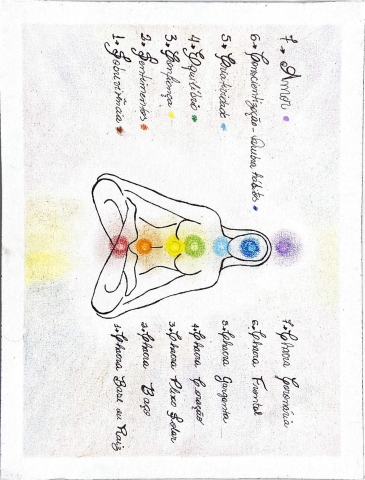 7. Amor
6. Conscientização -
5. Criatividade
4. Equilíbrio
3. Confiança
2. Sentimentos
1. Sobrevivência
7. Chacra Coronária
6. Chacra Frontal
5. Chacra Garganta
4. Chacra Coração
3. Chacra Plexo Solar
2. Chacra Baço
1. Chacra Base ou Raiz